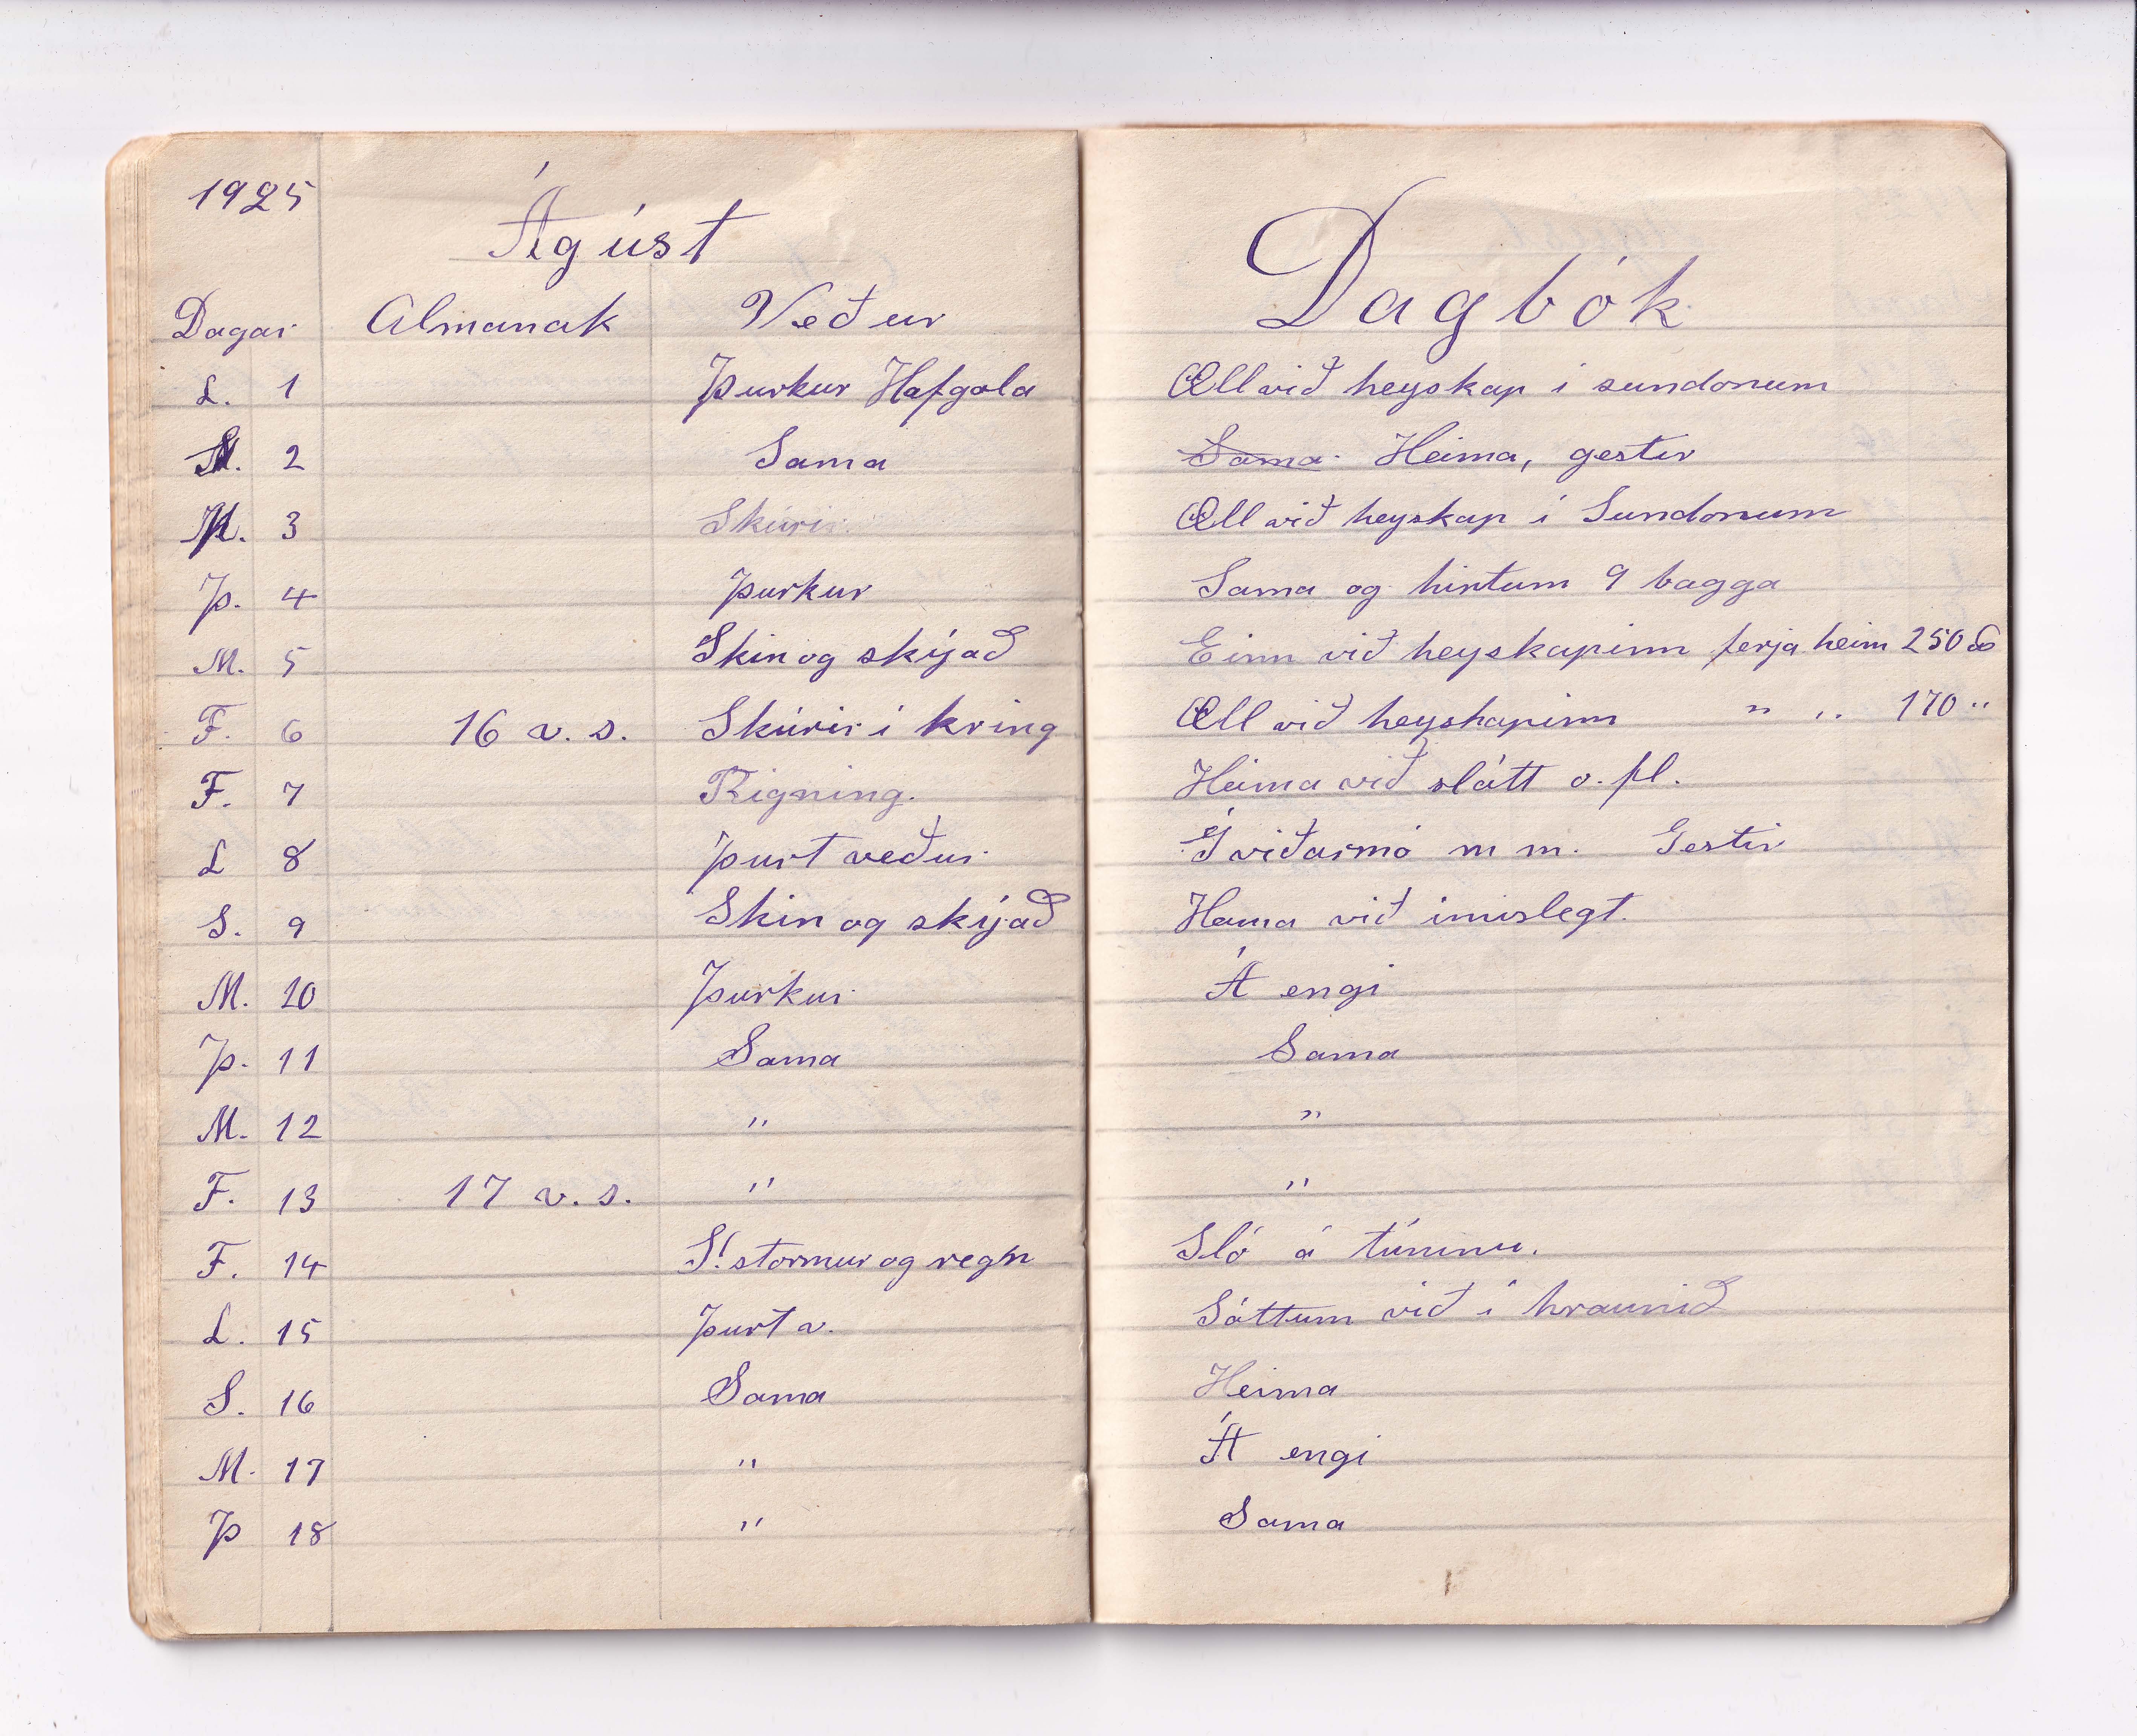 1925
Ágúst
Dagbók
Dagar Almanak Veður
L. 1 Þurkur Hafgola Öll við heyskap i sundonum
S. 2 Sama Sama Heima, gestir
M. 3 Skúrir Öll við heyskap í Sundonum
Þ. 4 Þurkur Sama og hirtum 9 bagga
M. 5 Skin og skýjað Einn við heyskapinn ferja heim 250 ℔
F. 6 16 v. s. Skúrir í kring Öll við heyskapinn " " 170 "
F. 7 Rigning. Heima við slátt o. fl.
L 8 Þurt veður Í viðarmó m m. Gestir
S. 9 Skin og skýjað Heima við imislegt.
M. 10 Þurkur Á engi
Þ. 11 Sama Sama
M. 12 " "
F. 13 17 v. s. " "
F. 14 S! stormur og regn Sló á túninu.
L. 15 Þurt v. Sóttum við í hraunið
S. 16 Sama Heima
M. 17 " Á engi
Þ 18 " Sama